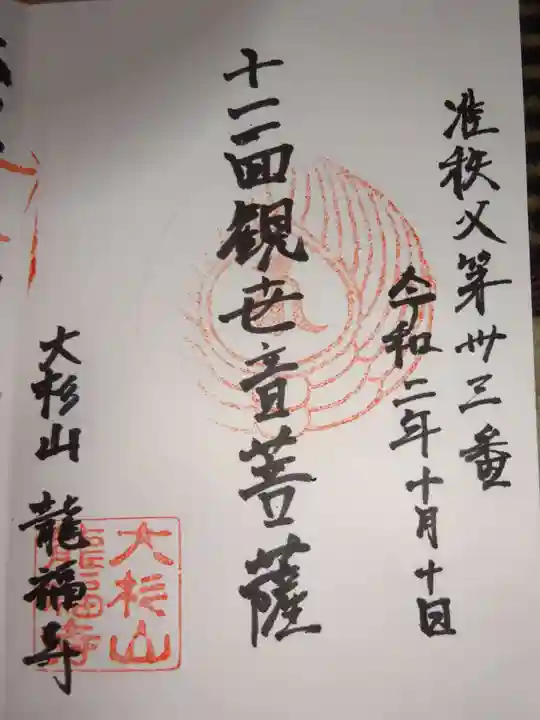 准秩父第卅三番
令和二年十月十日
十一面観世音菩薩
大杉山 龍福寺
大杉山
龍福寺